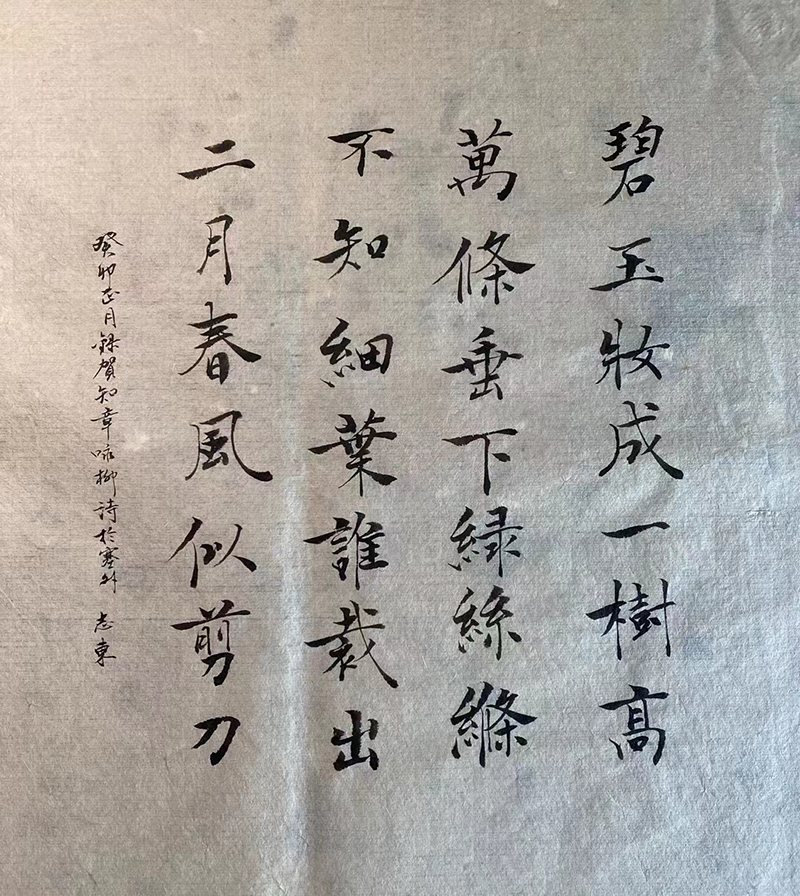 碧玉妝成一樹高
萬條垂下緑絲縧
不知細葉誰裁出
二月春風似剪刀
癸卯正月録賀知章咏柳詩於塞外 志東